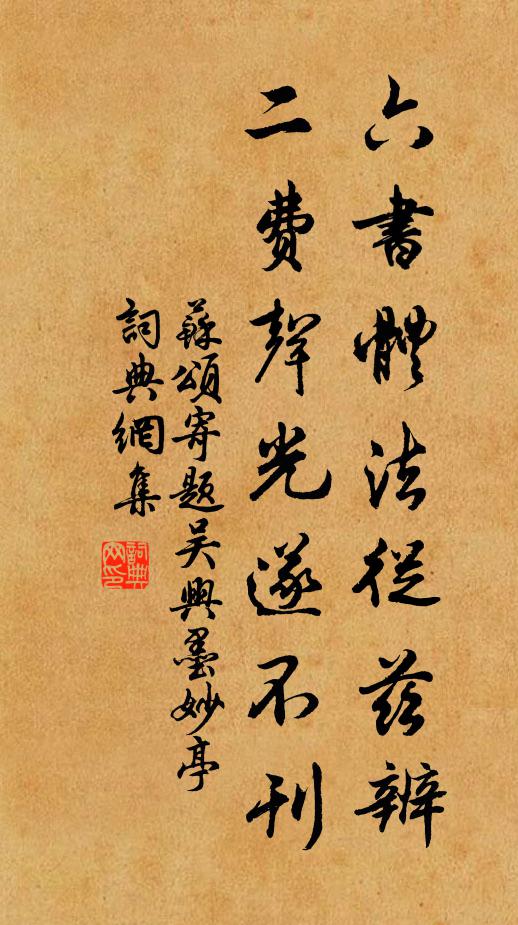 六書體法從茲辨
二費聲光遂不刊
蘇頌寄題吴興墨妙亭
詞典網集
詞典网印